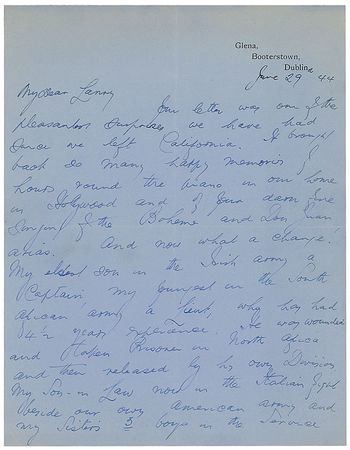 Glena,
Booterstown,
Dublin
June 29 44
My dear Lanny
Your letter was one of the
pleasantest surprises we have had
since we left California. It brought
back so many happy memories of
hours round the piano in our home
in Hollywood and of your darn fine
singing of the Boheme and Don Juan
arias. And now what a change.
My eldest son in the Irish army a
Captain, my youngest in the South
African army a Lieut, who has had
4½ years experience. He was wounded
and taken Prisoner in North Africa
and then released by his own Division
My Son-in Law now in the Italian fight
beside our own American army and
my sister's 3 boys in the Service